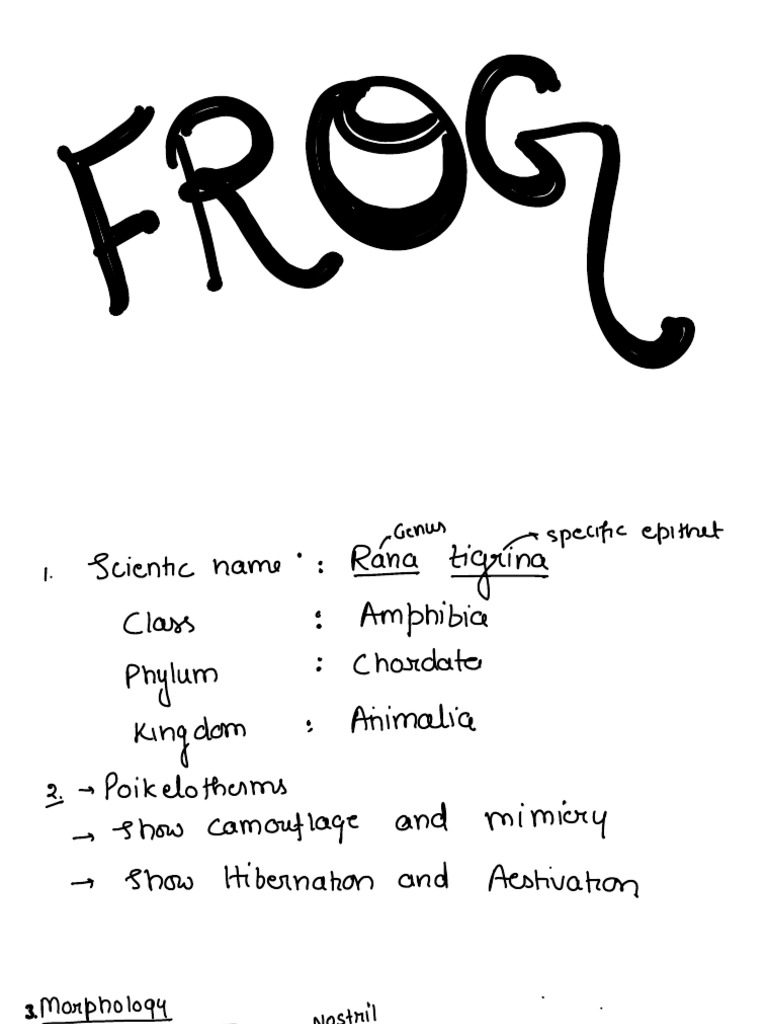 FROG
Genus specific epithet
1. Scientic name : Rana tigrina
Class : Amphibia
Phylum : Chordata
Kingdom : Animalia
2. → Poikelotherms
→ Show camouflage and mimicry
→ Show Hibernation and Aestivation
3. Morphology
Nostril